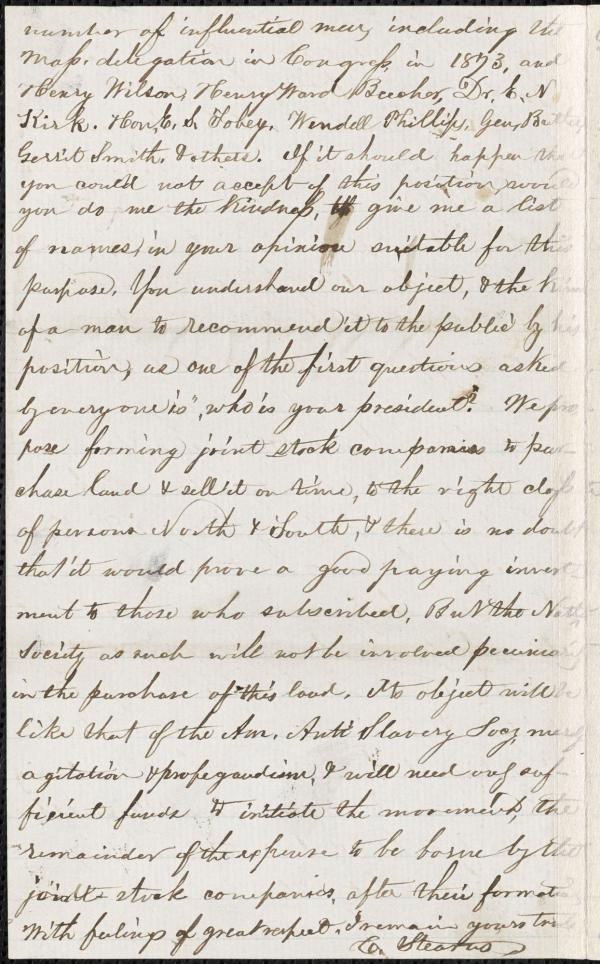 number of influential men, including the
Mass. delegation in Congress in 1873, and
Henry Wilson, Henry Ward Beecher, Dr. E. N
Kirk. Hon. E. S. Tobey, Wendell Phillips, Gen. Butler,
Gerrit Smith. & others. If it should happen that
you could not accept of this position, would
you do me the kindness, to give me a list
of names, in your opinion suitable for this
purpose. You understand our object, & the kind
of a man to recommend it to the public by his
position, as one of the first questions asked
by everyone is, "who is your president"? We pro
pose forming joint stock companies to pur
chase land & sell it on time, to the right class
of persons North & South, & there is no doubt
that it would prove a good paying invest
ment to those who subscribed, But the Natl.
Society as such will not be involved pecuniarily
in the purchase of this land. Its object will be
like that of the Am. Anti Slavery Soc, merely
agitation & propegandism, & will need only suf-
ficient funds to initiate the movement, the
remainder of the expense to be borne by the
joint stock companies, after their formation
With feelings of great respect, I remain yours truly
E. Stearns